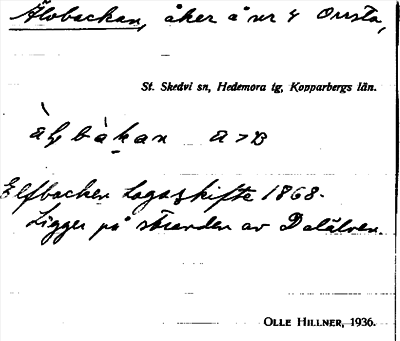 Älvbackan, åker å nr 4 Orrsta,
St. Skedvi sn, Hedemora tg, Kopparbergs län.
bàkan a > B
Elfbacken Lagaskifte 1868.
Ligger på stranden av Dalälven.
OLLE HILLNER, 1936.